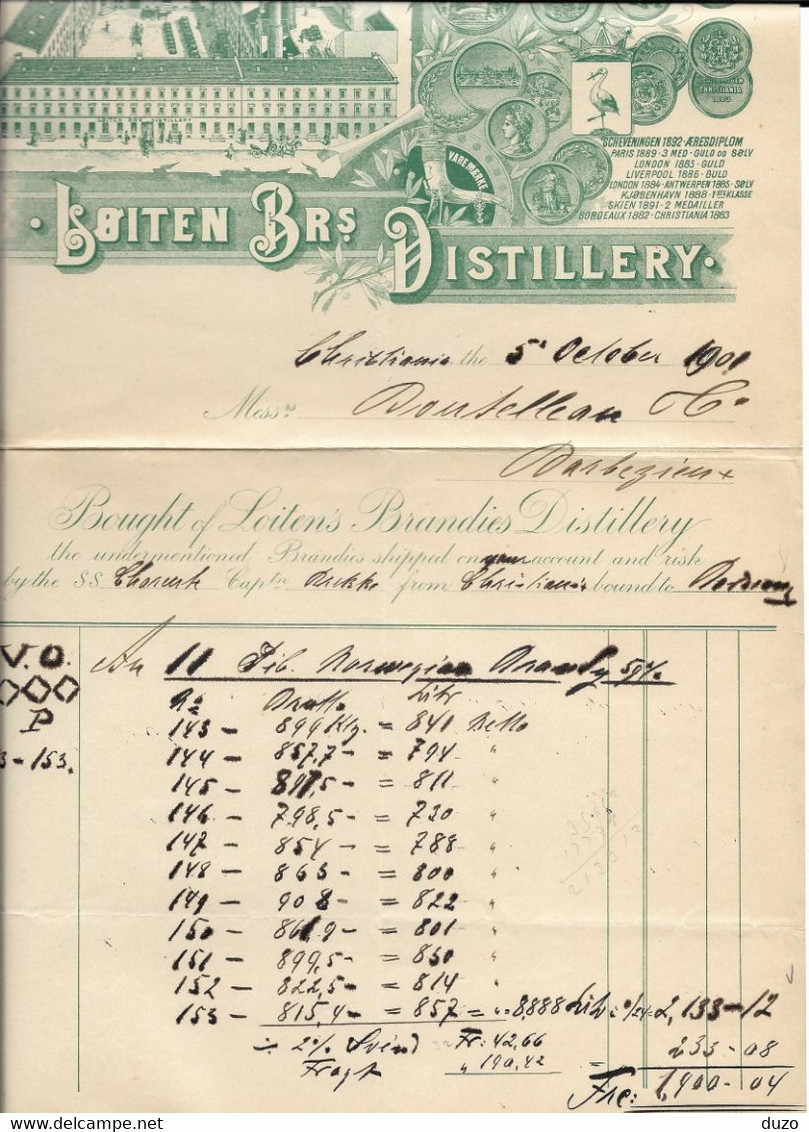 LØITEN BRS DISTILLERY
CHRISTIANIA
1883
VAREMERKE
SCHEVENINGEN 1892·ÆRESDIPLOM
PARIS 1889·3 MED·GULD OG SØLV
LONDON 1885·GULD
LIVERPOOL 1886·GULD
LONDON 1884·ANTWERPEN 1885·SØLV
KJØBENHAVN 1888·1STE KLASSE
SKIEN 1891·2 MEDAILLER
BORDEAUX 1882·CHRISTIANIA 1883
LØITEN BRS DISTILLERY
Christiania, the 5' October 1901
Messrs Boutelleau & Co
Barbezieux
Bought of Loiten's Brandies Distillery
the undermentioned Brandies shipped on your account and risk
by the SS. Captn from Christiania bound to
V.O. An 11 Fib. Norwegian Brandy 59%
No Brutto Litr
P 143 - 899 Klg. = 841 Netto
144 - 857,7 - = 794 "
3-153. 145 - 897,5 - = 811 "
146 - 798,5 - = 730 "
147 - 854 - = 788 "
148 - 863 - = 800 "
149 - 908 - = 822 "
150 - 861,9 - = 801 "
151 - 899,5 - = 830 "
152 - 822,5 - = 814 "
153 - 815,4 - = 857 = 8888 Litr 2,133-12
÷ 2% Svind Fr: 42,66
Fragt " 190,42 = 233-08
Frc: 1,900-04
duzo